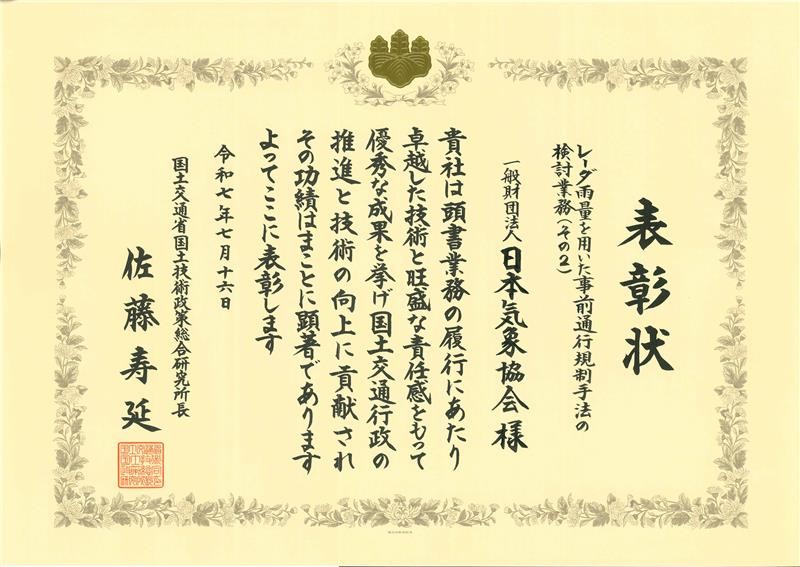 表彰状
レーダ雨量を用いた事前通行規制手法の
検討業務(その2)
一般財団法人 日本気象協会 様
貴社は頭書業務の履行にあたり
卓越した技術と旺盛な責任感をもって
優秀な成果を挙げ国土交通行政の
推進と技術の向上に貢献され
その功績はまことに顕著であります
よってここに表彰します
令和七年七月十六日
国土交通省国土技術政策総合研究所長
佐藤寿延